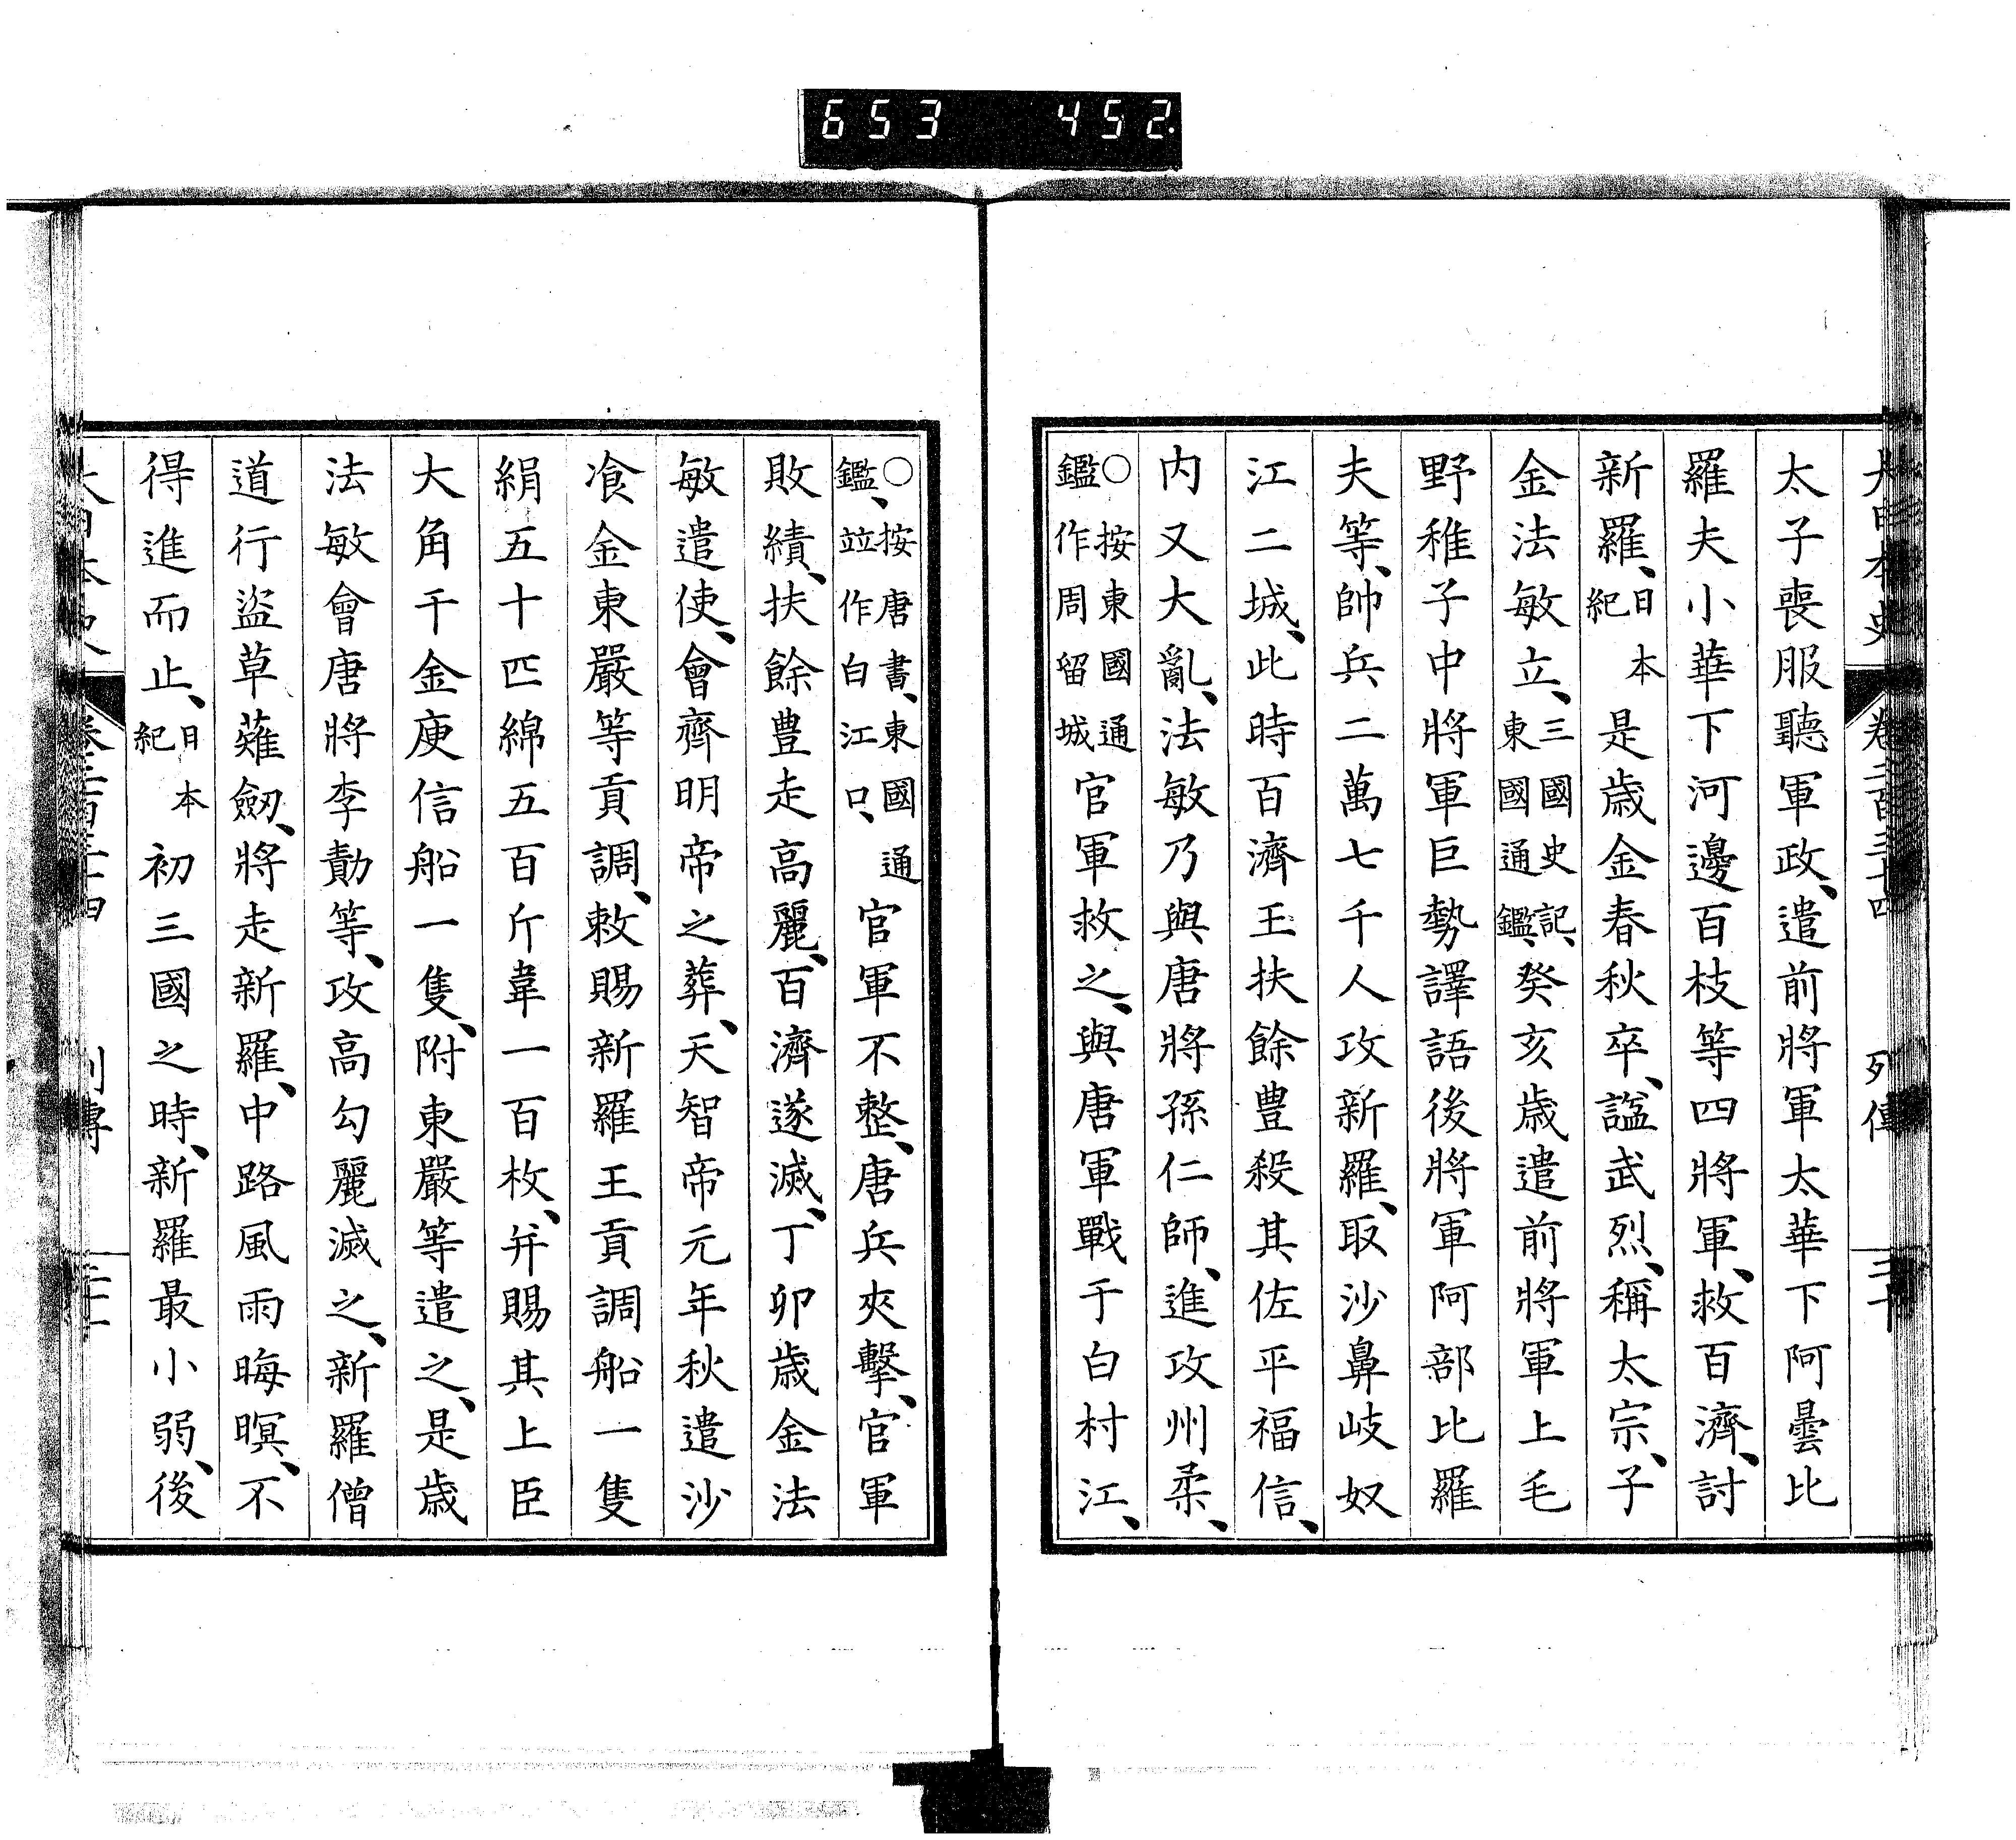 653 452.
大日本史 卷二百三十四 列傳 三十
太子喪服聽軍政、遣前將軍太華下阿曇比
羅夫小華下河邊百枝等四將軍、救百濟、討
新羅、日本紀是歲金春秋卒、諡武烈、稱太宗、子
金法敏立、三國史記、東國通鑑、癸亥歲遣前將軍上毛
野稚子中將軍巨勢譯語後將軍阿部比羅
夫等、帥兵二萬七千人攻新羅、取沙鼻岐奴
江二城、此時百濟王扶餘豊殺其佐平福信、
内又大亂、法敏乃與唐將孫仁師、進攻州柔、
○按東國通鑑作周留城官軍救之、與唐軍戰于白村江、
○按唐書、東國通鑑、竝作白江口、官軍不整、唐兵夾擊、官軍
敗績、扶餘豊走高麗、百濟遂滅、丁卯歲金法
敏遣使、會齊明帝之葬、天智帝元年秋遣沙
飡金東嚴等貢調、敕賜新羅王貢調船一隻
絹五十匹綿五百斤韋一百枚、并賜其上臣
大角干金庾信船一隻、附東嚴等遣之、是歲
法敏會唐將李勣等、攻高勾麗滅之、新羅僧
道行盜草薙劔、將走新羅、中路風雨晦暝、不
得進而止、日本紀初三國之時、新羅最小弱、後